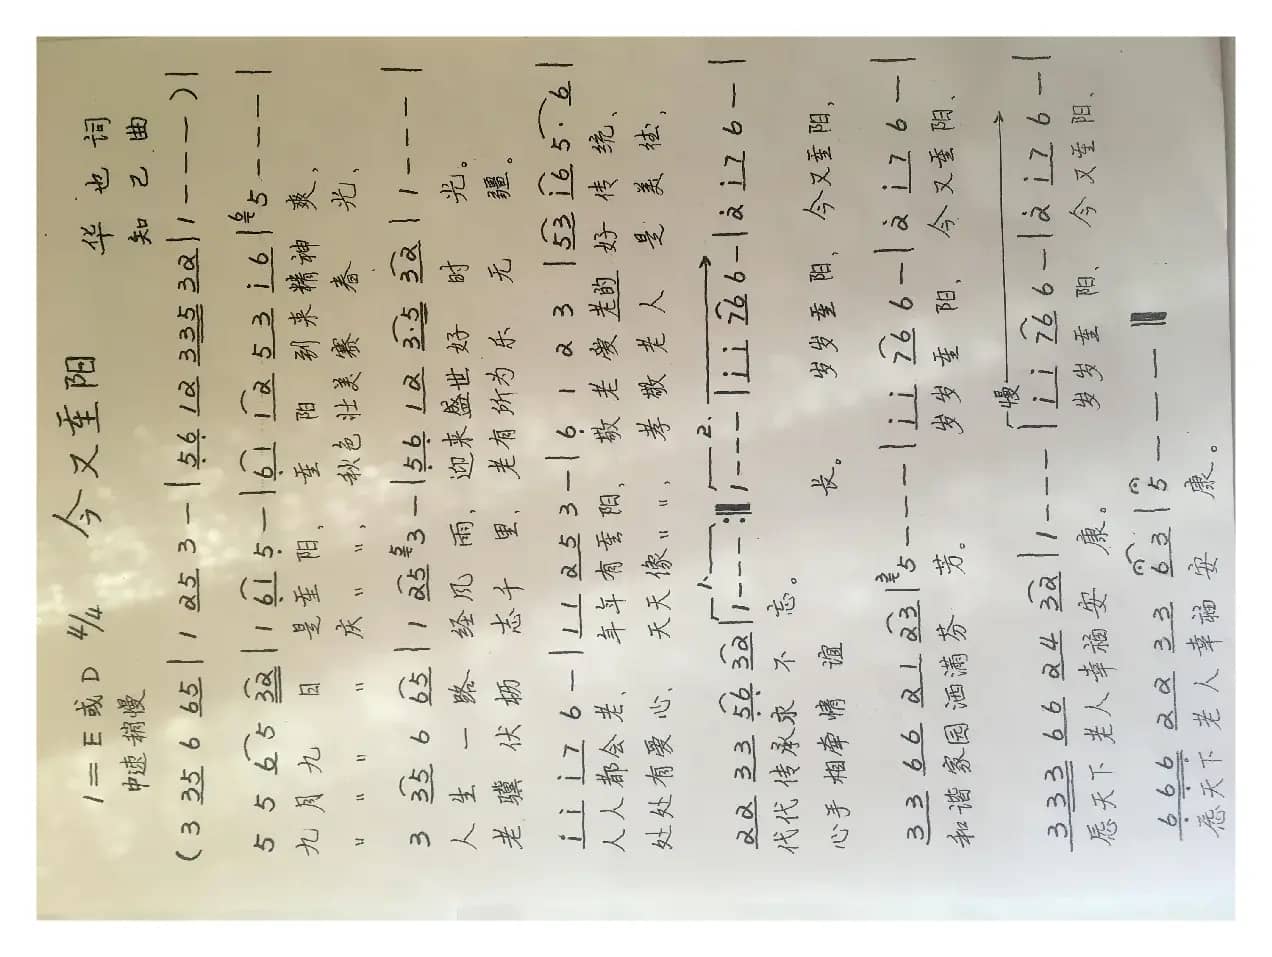 今又重阳
1=E或D 4/4
中速稍慢
华也 词
知己 曲
(3 35 6 65 | 1 25 3 - | 56 12 335 32 | 1 - - - ) |
5 5 65 32 | 1 61 5 - | 61 12 53 i6 | 5 - - - |
九月九日是重阳，重阳到来精神爽，
〃 〃 〃 〃 庆 〃 〃，秋色壮美赛春光，
3 35 6 65 | 1 25 3 - | 56 12 3·5 32 | 1 - - - |
人生一路经风雨，迎来盛世好时光。
老骥伏枥志千里，老有所为乐无疆。
i i i7 6 - | 11 25 3 - | 6 1 2 3 | 53 i6 5·6 |
人人都会老，年年有重阳，敬老爱老的好传统，
处处有爱心，天天像〃〃，孝敬老人是美德，
22 33 56 32 | 1.1 - - - :‖ 2.1 - - - | i i 76 6 - | 2 i7 6 - |
代代传承永不忘。
心手相牵情谊长。岁岁重阳，今又重阳，
33 66 21 23 | 5 - - - | i i 76 6 - | 2 i7 6 - |
和谐家园洒满芬芳。岁岁重阳，今又重阳，
慢
333 66 24 32 | 1 - - - | i i 76 6 - | 2 i7 6 - |
愿天下老人幸福安康。岁岁重阳，今又重阳，
666 22 33 63 | 5 - - - ‖
愿天下老人幸福安康。